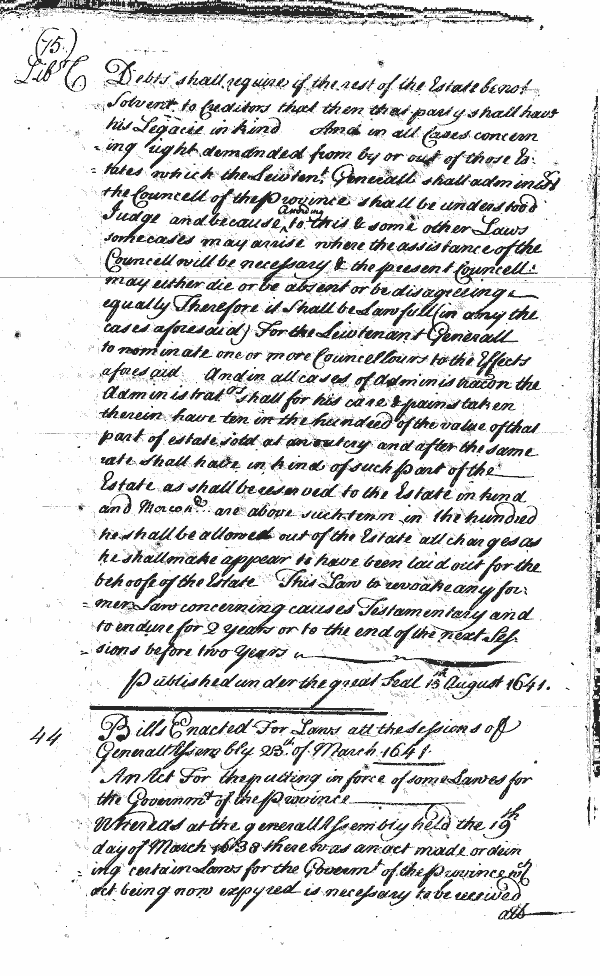 (75.)
Lib. C
Debts shall require if the rest of the Estate be not
Solvent to Creditors that then that party shall have
his Legacie in kind And in all Cases concern
ing right demanded from by or out of those Es:
tates which the Lieuten.t Generall shall administ
the Councell of the Province shall be understood
Judge and because, to this & some other Laws
some cases may arrise where the assistance of the
Councell will be necessary & the present Councell:
may either die or be absent or be disagreeing
equally Therefore it Shall be Lawfull (in any the
cases aforesaid) For the Lieutenant Generall
to nominate one or more Councellours to the Effects
aforesaid And in all cases of Administracon the
Administrator shall for his care & pains taken
therein have ten in the hundred of the value of that
part of estate sold at an outcry and after the same
rate shall have in kind of such Part of the
Estate as shall be reserved to the Estate in kind
and are above such tenn in the hundred
he shall be allowed out of the Estate all charges as
he shall make appear to have been laid out for the
behoofe of the Estate This Law to revoake any for:
mer Law concerning causes Testamentary and
to endure for 2 Years or to the end of the next Ses
sions before two Years
Published under the great Seal 13th August 1641.
44
Bills Enacted For Laws att the sessions of
Generall Assembly 23th of March 1641
An Act For the putting in force of some Lawes for
the Governmt of the Province
Whereas at the generall Assembly held the 19th
day of March 1638 there was an act made ordein
ing certain Laws for the Governmt of the Province wch
act being now expyred is necessary to be revived